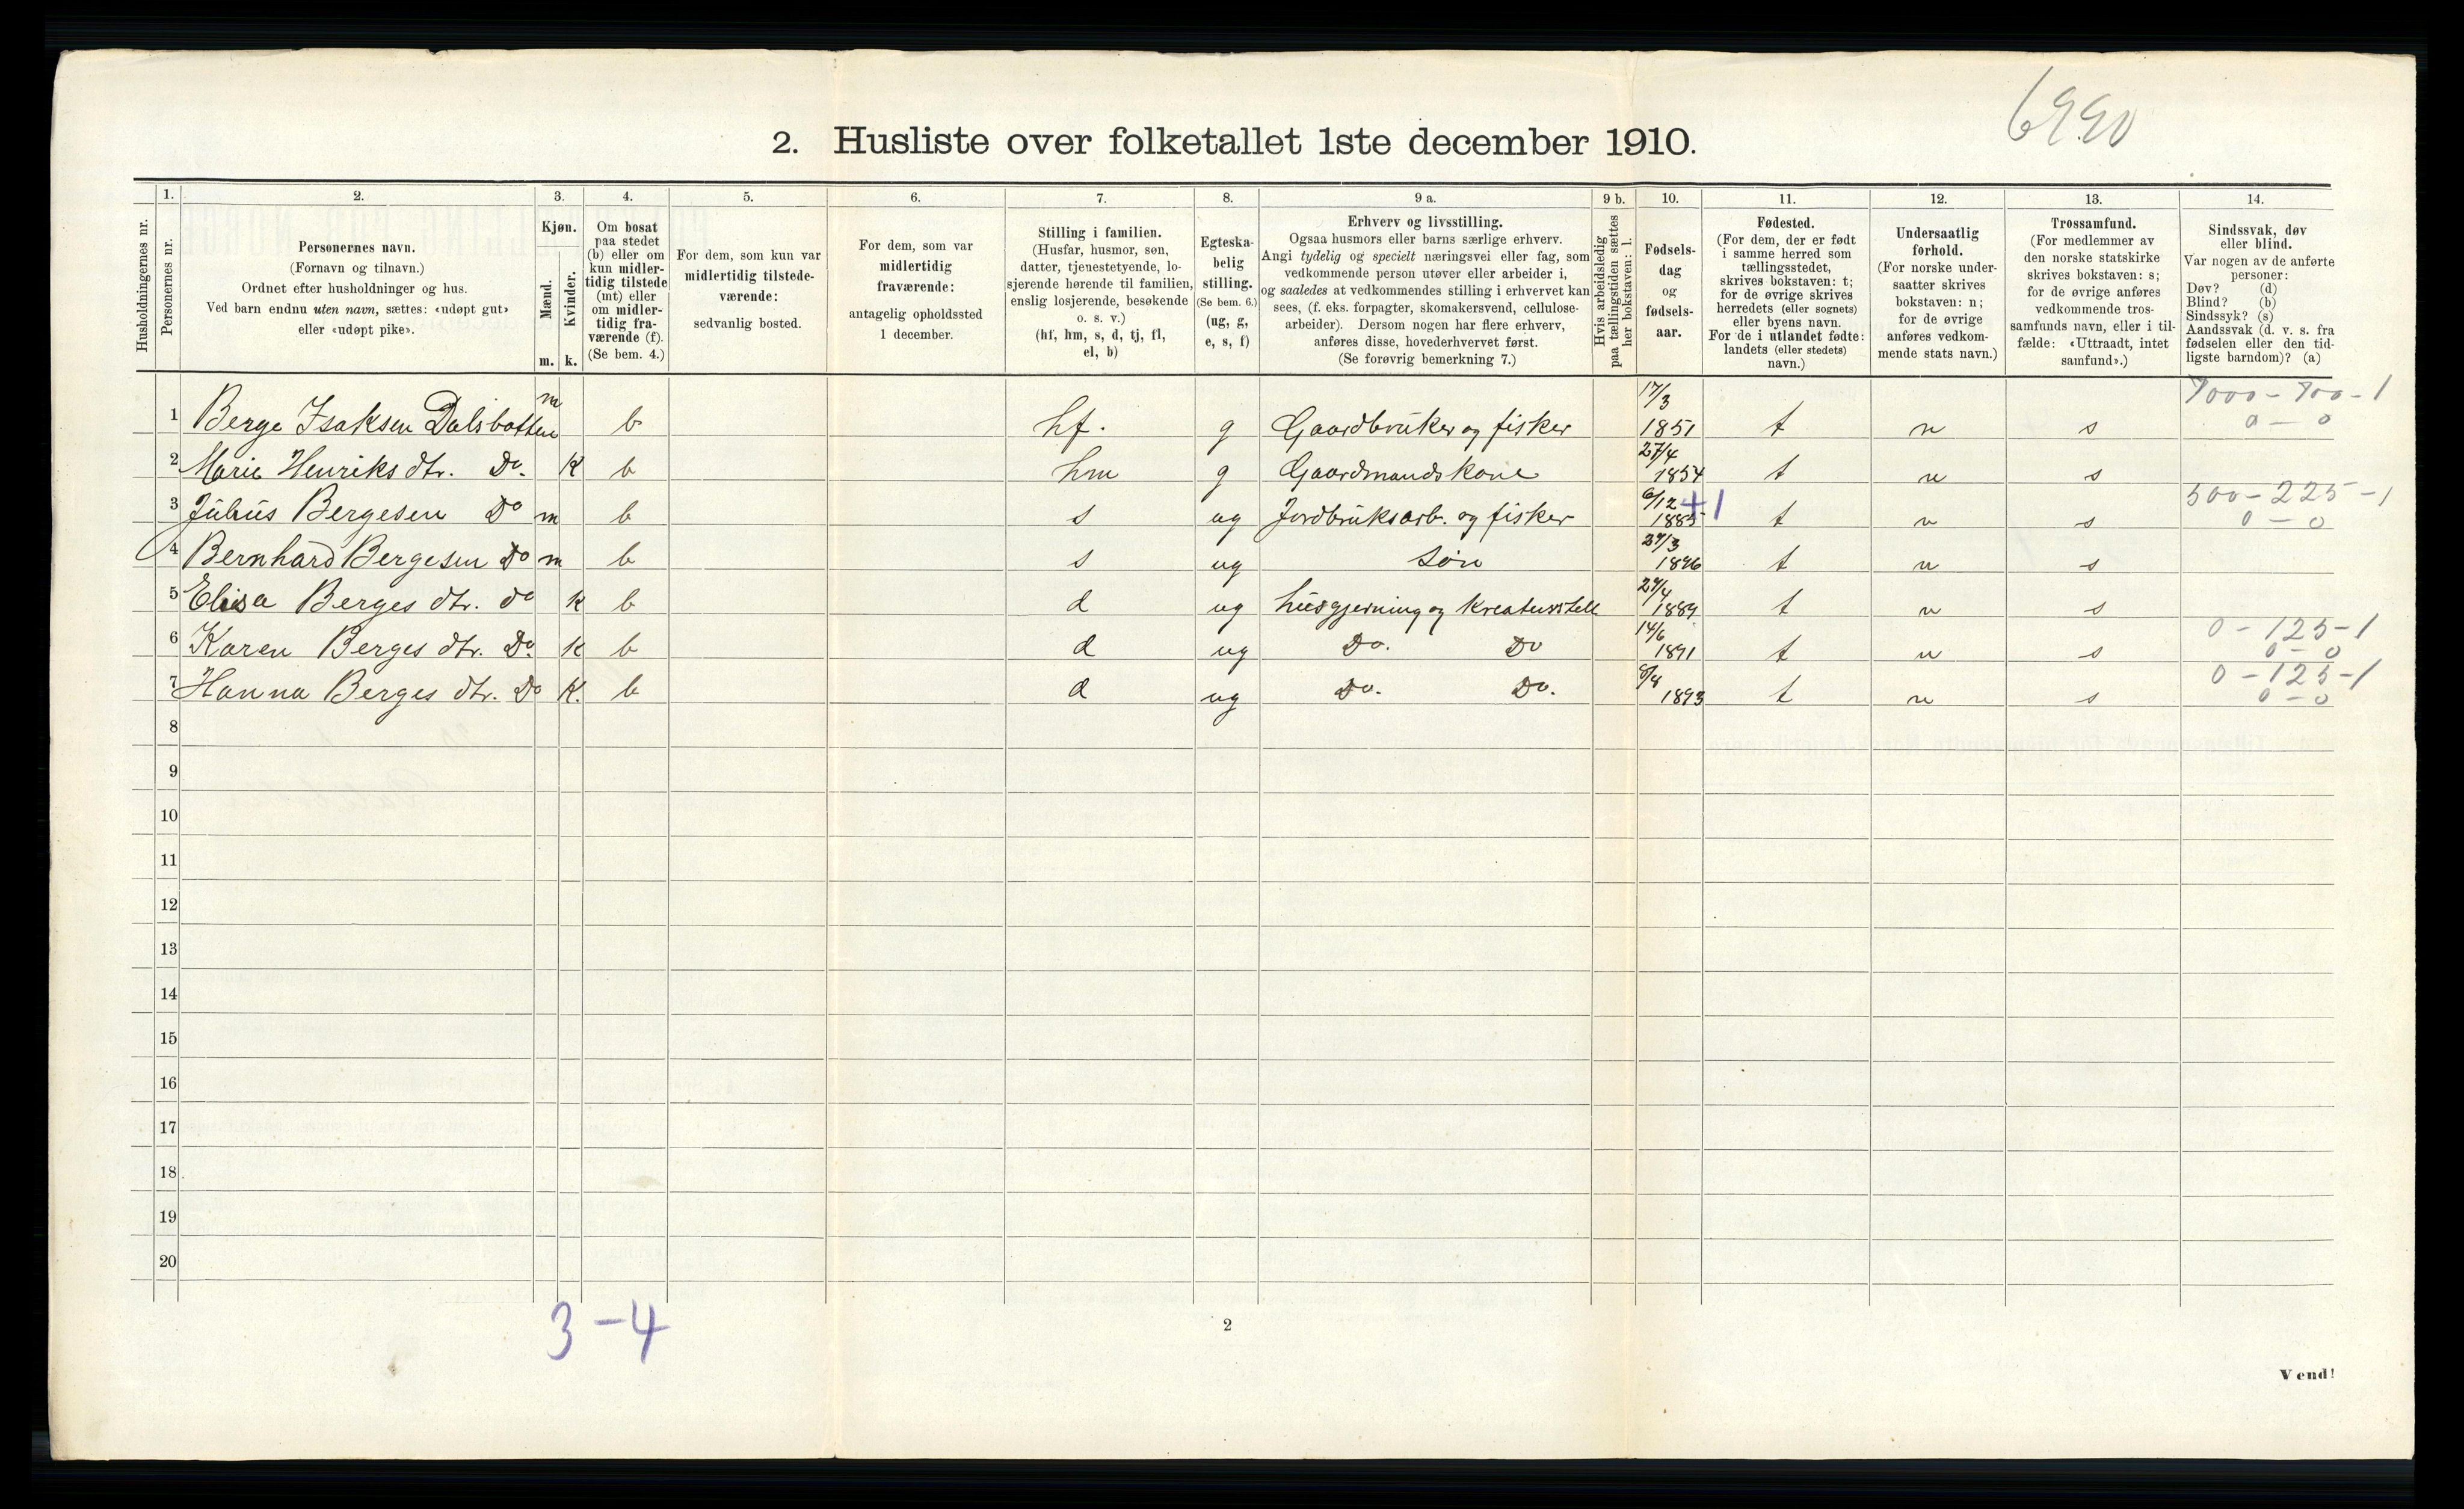 6990
2. Husliste over folketallet 1ste december 1910.
Husholdningernes nr.
1.
Personernes nr.
2.
Personernes navn.
(Fornavn og tilnavn.)
Ordnet efter husholdninger og hus.
Ved barn endnu uten navn, sættes: «udøpt gut»
eller «udøpt pike».
3.
Kjøn.
Mænd.
Kvinder.
m. k.
4.
Om bosat
paa stedet
(b) eller om
kun midler-
tidig tilstede
(mt) eller
om midler-
tidig fra-
værende (f).
(Se bem. 4.)
5.
For dem, som kun var
midlertidig tilstede-
værende:
sedvanlig bosted.
6.
For dem, som var
midlertidig
fraværende:
antagelig opholdssted
1 december.
7.
Stilling i familien.
(Husfar, husmor, søn,
datter, tjenestetyende, lo-
sjerende hørende til familien,
enslig losjerende, besøkende
o. s. v.)
(hf, hm, s, d, tj, fl,
el, b)
8.
Egteska-
belig
stilling.
(Se bem. 6.)
(ug, g,
e, s, f)
9 a.
Erhverv og livsstilling.
Ogsaa husmors eller barns særlige erhverv.
Angi tydelig og specielt næringsvei eller fag, som
vedkommende person utøver eller arbeider i,
og saaledes at vedkommendes stilling i erhvervet kan
sees, (f. eks. forpagter, skomakersvend, cellulose-
arbeider). Dersom nogen har flere erhverv,
anføres disse, hovederhvervet først.
(Se forøvrig bemerkning 7.)
9 b.
Hvis arbeidsledig
paa tællingstiden sættes
her bokstaven: l.
10.
Fødsels-
dag
og
fødsels-
aar.
11.
Fødested.
(For dem, der er født
i samme herred som
tællingsstedet,
skrives bokstaven: t;
for de øvrige skrives
herredets (eller sognets)
eller byens navn.
For de i utlandet fødte:
landets (eller stedets)
navn.)
12.
Undersaatlig
forhold.
(For norske under-
saatter skrives
bokstaven: n;
for de øvrige
anføres vedkom-
mende stats navn.)
13.
Trossamfund.
(For medlemmer av
den norske statskirke
skrives bokstaven: s;
for de øvrige anføres
vedkommende tros-
samfunds navn, eller i til-
fælde: «Uttraadt, intet
samfund».)
14.
Sindssvak, døv
eller blind.
Var nogen av de anførte
personer:
Døv? (d)
Blind? (b)
Sindssyk? (s)
Aandssvak (d. v. s. fra
fødselen eller den tid-
ligste barndom)? (a)
1 Berge Isaksen Dalsbotten m b hf. g Gaardbruker og fisker 17/3 1851 t n s 7000-700-1 0-0
2 Marie Henriks dtr. Do. K b hm g Gaardmandskone 27/4 1854 t n s
3 Julius Bergesen Do m b s ug Jordbruksarb. og fisker 6/12 1885 41 t n s 500-225-1 0-0
4 Bernhard Bergesen Do m b s ug søn 27/3 1896 t n s
5 Elisa Berges dtr. do k b d ug husgjerning og kreaturstell 24/4 1889 t n s
6 Karen Berges dtr. Do. k b d ug Do. Do 14/6 1891 t n s 0-125-1 0-0
7 Hanna Berges dtr. Do K. b d ug Do. Do. 8/8 1893 t n s 0-125-1 0-0
8
9
10
11
12
13
14
15
16
17
18
19
20
3-4
2
Vend!